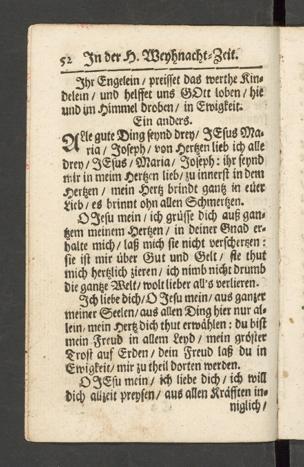 52 In der H. Weyhnacht-Zeit.
Ihr Engelein / preisset das werthe Kin-
delein / und helffet uns GOtt loben / hie
und im Himmel droben / in Ewigkeit.
Ein anders.
Alle gute Ding seynd drey / JEsus Ma-
ria / Joseph / von Hertzen lieb ich alle
drey / JEsus / Maria / Joseph : ihr seynd
mir in meim Hertzen lieb / zu innerst in dem
Hertzen / mein Hertz brindt gantz in eüer
Lieb / es brinnt ohn allen Schmertzen.
O JEsu mein / ich grüsse dich auß gan-
tzem meinem Hertzen / in deiner Gnad er-
halte mich / laß mich sie nicht verschertzen :
sie ist mir über Gut und Gelt / sie thut
mich hertzlich zieren / ich nimb nicht drumb
die gantze Welt / wolt lieber all's verlieren.
Ich liebe dich / O Jesu mein / aus gantzer
meiner Seelen / aus allen Ding hier nur al-
lein / mein Hertz dich thut erwählen : du bist
mein Freud in allem Leyd / mein gröster
Trost auf Erden / dein Freud laß du in
Ewigkeit / mir zu theil dorten werden.
O JEsu mein / ich liebe dich / ich will
dich allzeit preysen / aus allen Kräfften in-
niglich /